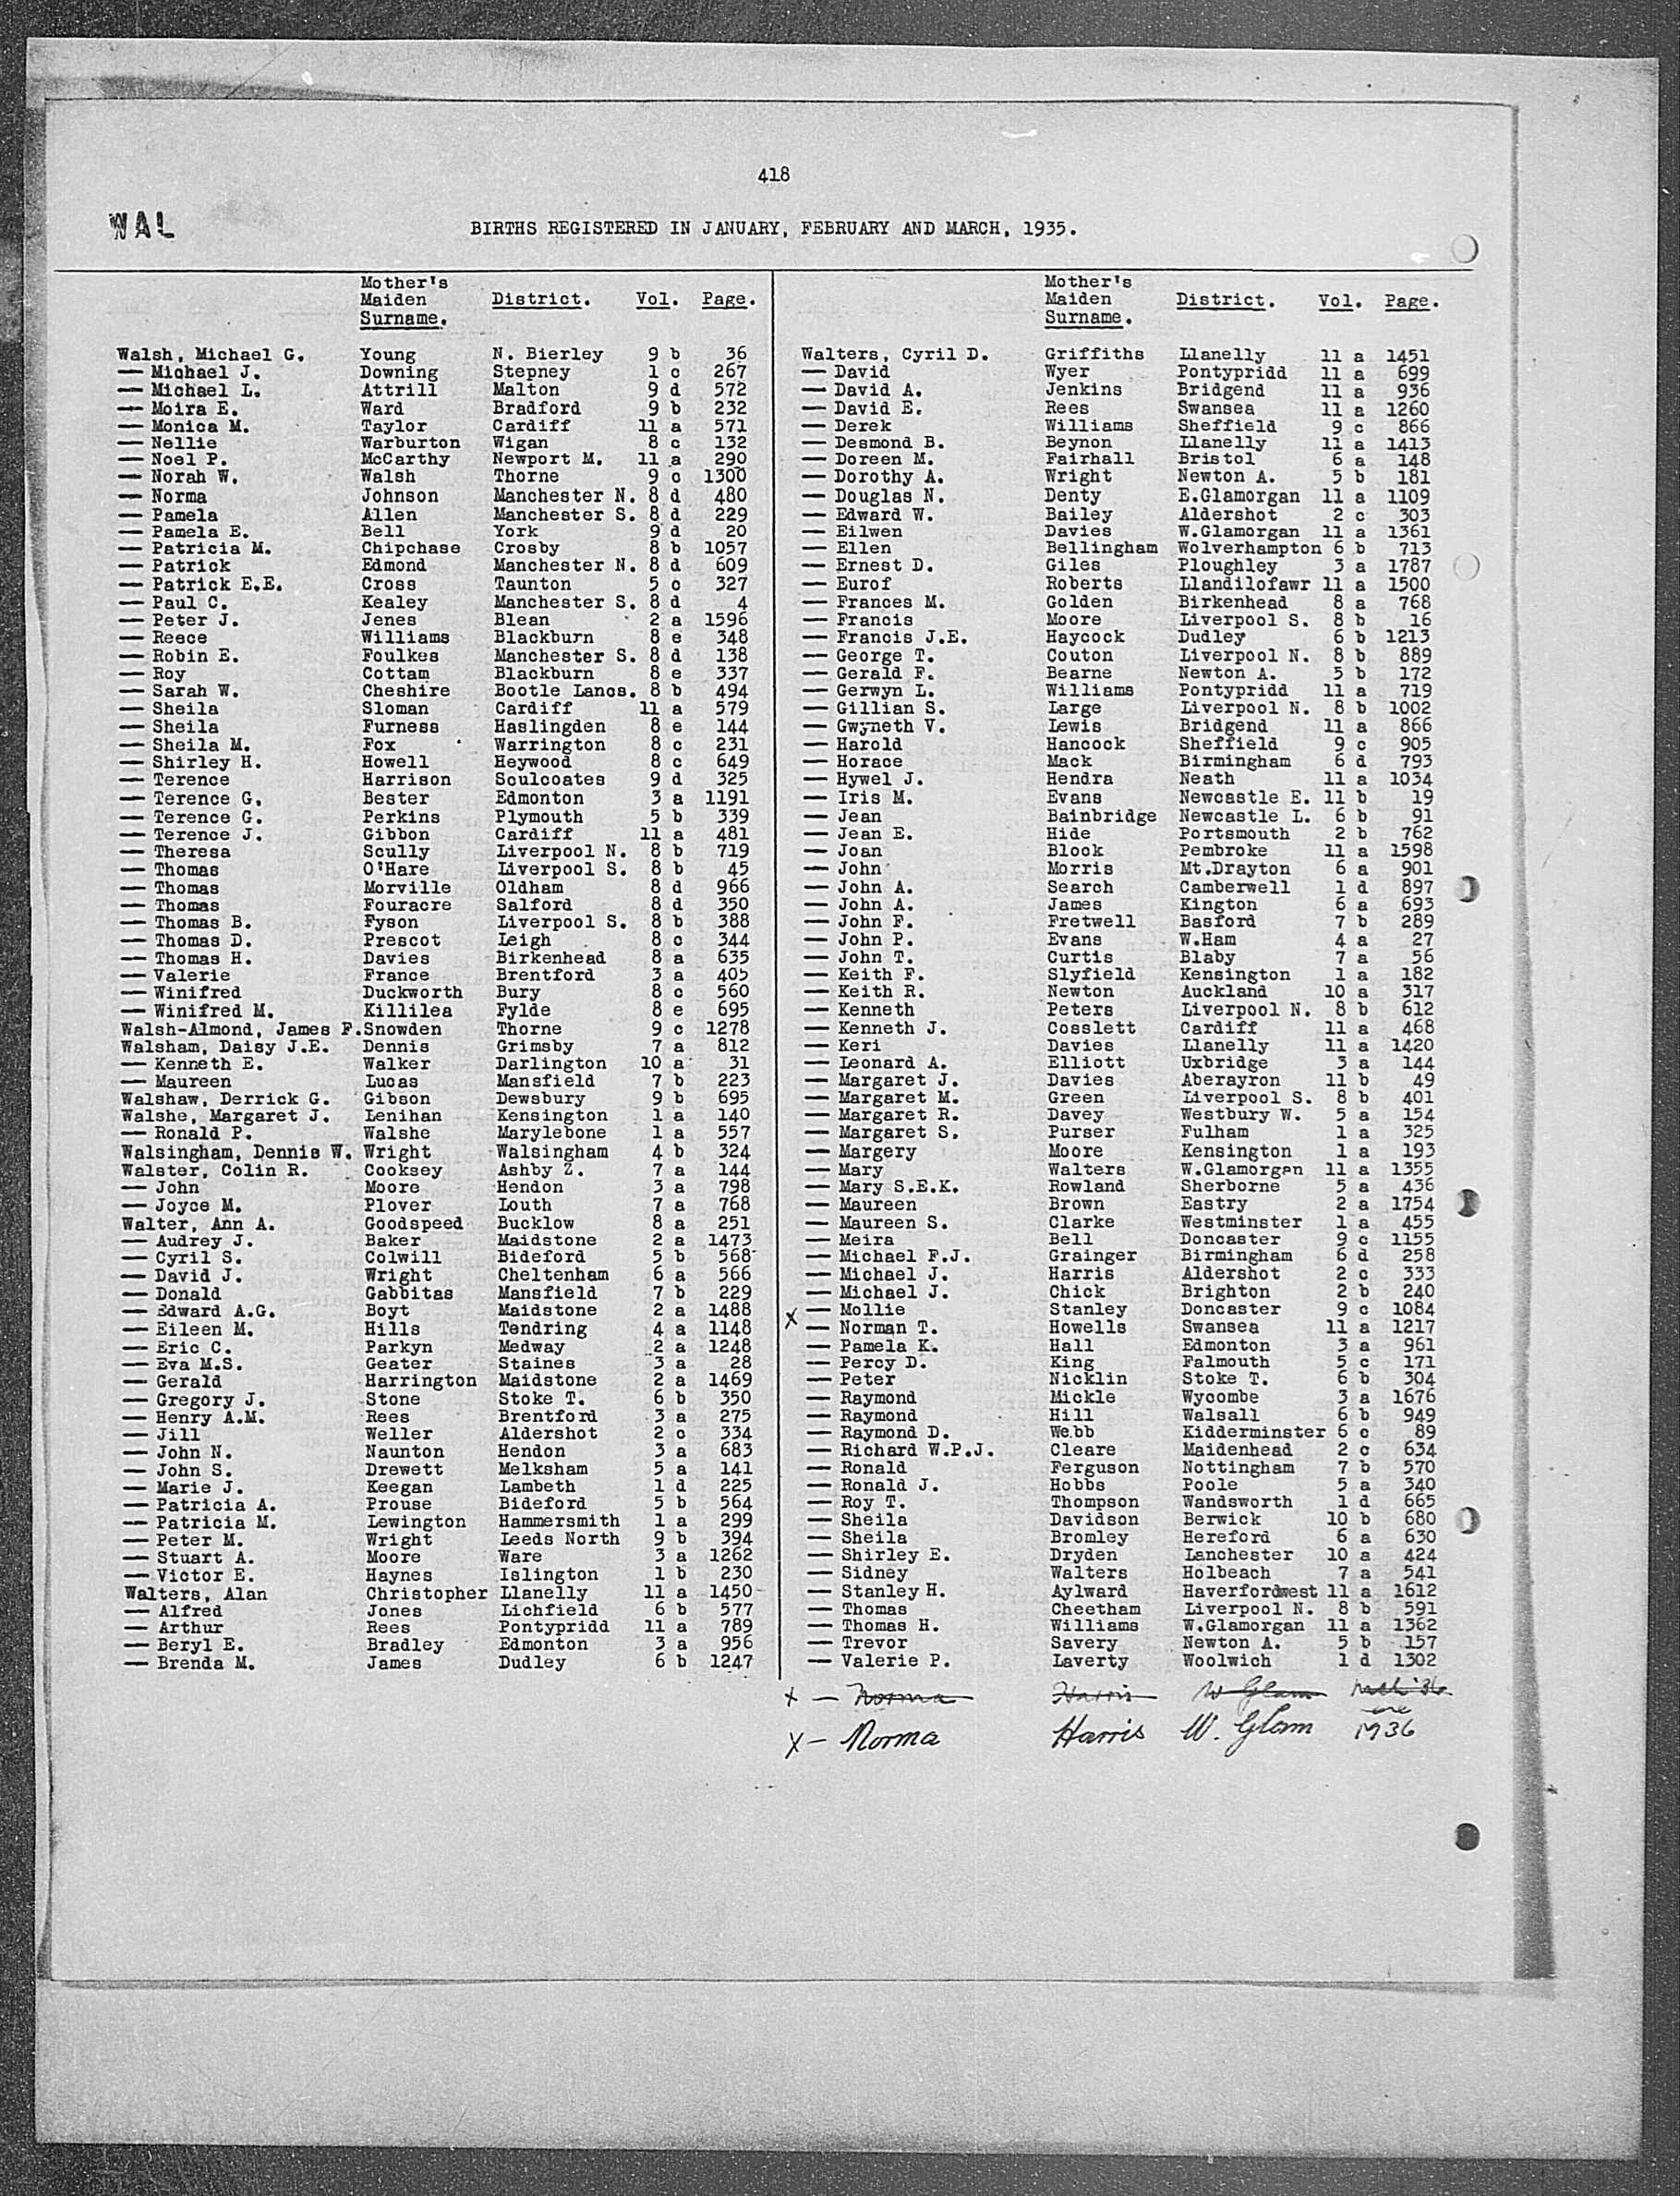 418
WAL
BIRTHS REGISTERED IN JANUARY, FEBRUARY AND MARCH, 1935.
Mother's
Maiden District. Vol. Page.
Surname.
Walsh, Michael G. Young N. Bierley 9 b 36
— Michael J. Downing Stepney 1 c 267
— Michael L. Attrill Malton 9 d 572
— Moira E. Ward Bradford 9 b 232
— Monica M. Taylor Cardiff 11 a 571
— Nellie Warburton Wigan 8 c 132
— Noel P. McCarthy Newport M. 11 a 290
— Norah W. Walsh Thorne 9 c 1300
— Norma Johnson Manchester N. 8 d 480
— Pamela Allen Manchester S. 8 d 229
— Pamela E. Bell York 9 d 20
— Patricia M. Chipchase Crosby 8 b 1057
— Patrick Edmond Manchester N. 8 d 609
— Patrick E.E. Cross Taunton 5 c 327
— Paul C. Kealey Manchester S. 8 d 4
— Peter J. Jenes Blean 2 a 1596
— Reece Williams Blackburn 8 e 348
— Robin E. Foulkes Manchester S. 8 d 138
— Roy Cottam Blackburn 8 e 337
— Sarah W. Cheshire Bootle Lancs. 8 b 494
— Sheila Sloman Cardiff 11 a 579
— Sheila Furness Haslingden 8 e 144
— Sheila M. Fox Warrington 8 c 231
— Shirley H. Howell Heywood 8 c 649
— Terence Harrison Sculcoates 9 d 325
— Terence G. Bester Edmonton 3 a 1191
— Terence G. Perkins Plymouth 5 b 339
— Terence J. Gibbon Cardiff 11 a 481
— Theresa Scully Liverpool N. 8 b 719
— Thomas O'Hare Liverpool S. 8 b 45
— Thomas Morville Oldham 8 d 966
— Thomas Fouracre Salford 8 d 350
— Thomas B. Fyson Liverpool S. 8 b 388
— Thomas D. Prescot Leigh 8 c 344
— Thomas H. Davies Birkenhead 8 a 635
— Valerie France Brentford 3 a 405
— Winifred Duckworth Bury 8 c 560
— Winifred M. Killilea Fylde 8 e 695
Walsh-Almond, James F. Snowden Thorne 9 c 1278
Walsham, Daisy J.E. Dennis Grimsby 7 a 812
— Kenneth E. Walker Darlington 10 a 31
— Maureen Lucas Mansfield 7 b 223
Walshaw, Derrick G. Gibson Dewsbury 9 b 695
Walshe, Margaret J. Lenihan Kensington 1 a 140
— Ronald P. Walshe Marylebone 1 a 557
Walsingham, Dennis W. Wright Walsingham 4 b 324
Walster, Colin R. Cooksey Ashby Z. 7 a 144
— John Moore Hendon 3 a 798
— Joyce M. Plover Louth 7 a 768
Walter, Ann A. Goodspeed Bucklow 8 a 251
— Audrey J. Baker Maidstone 2 a 1473
— Cyril S. Colwill Bideford 5 b 568
— David J. Wright Cheltenham 6 a 566
— Donald Gabbitas Mansfield 7 b 229
— Edward A.G. Boyt Maidstone 2 a 1488
— Eileen M. Hills Tendring 4 a 1148
— Eric C. Parkyn Medway 2 a 1248
— Eva M.S. Geater Staines 3 a 28
— Gerald Harrington Maidstone 2 a 1469
— Gregory J. Stone Stoke T. 6 b 350
— Henry A.M. Rees Brentford 3 a 275
— Jill Weller Aldershot 2 c 334
— John N. Naunton Hendon 3 a 683
— John S. Drewett Melksham 5 a 141
— Marie J. Keegan Lambeth 1 d 225
— Patricia A. Prouse Bideford 5 b 564
— Patricia M. Lewington Hammersmith 1 a 299
— Peter M. Wright Leeds North 9 b 394
— Stuart A. Moore Ware 3 a 1262
— Victor E. Haynes Islington 1 b 230
Walters, Alan Christopher Llanelly 11 a 1450
— Alfred Jones Lichfield 6 b 577
— Arthur Rees Pontypridd 11 a 789
— Beryl E. Bradley Edmonton 3 a 956
— Brenda M. James Dudley 6 b 1247
Mother's
Maiden District. Vol. Page.
Surname.
Walters, Cyril D. Griffiths Llanelly 11 a 1451
— David Wyer Pontypridd 11 a 699
— David A. Jenkins Bridgend 11 a 936
— David E. Rees Swansea 11 a 1260
— Derek Williams Sheffield 9 c 866
— Desmond B. Beynon Llanelly 11 a 1413
— Doreen M. Fairhall Bristol 6 a 148
— Dorothy A. Wright Newton A. 5 b 181
— Douglas N. Denty E.Glamorgan 11 a 1109
— Edward W. Bailey Aldershot 2 c 303
— Eilwen Davies W.Glamorgan 11 a 1361
— Ellen Bellingham Wolverhampton 6 b 713
— Ernest D. Giles Ploughley 3 a 1787
— Eurof Roberts Llandilofawr 11 a 1500
— Frances M. Golden Birkenhead 8 a 768
— Francis Moore Liverpool S. 8 b 16
— Francis J.E. Haycock Dudley 6 b 1213
— George T. Couton Liverpool N. 8 b 889
— Gerald F. Bearne Newton A. 5 b 172
— Gerwyn L. Williams Pontypridd 11 a 719
— Gillian S. Large Liverpool N. 8 b 1002
— Gwyneth V. Lewis Bridgend 11 a 866
— Harold Hancock Sheffield 9 c 905
— Horace Mack Birmingham 6 d 793
— Hywel J. Hendra Neath 11 a 1034
— Iris M. Evans Newcastle E. 11 b 19
— Jean Bainbridge Newcastle L. 6 b 91
— Jean E. Hide Portsmouth 2 b 762
— Joan Block Pembroke 11 a 1598
— John Morris Mt.Drayton 6 a 901
— John A. Search Camberwell 1 d 897
— John A. James Kington 6 a 693
— John F. Fretwell Basford 7 b 289
— John P. Evans W.Ham 4 a 27
— John T. Curtis Blaby 7 a 56
— Keith F. Slyfield Kensington 1 a 182
— Keith R. Newton Auckland 10 a 317
— Kenneth Peters Liverpool N. 8 b 612
— Kenneth J. Cosslett Cardiff 11 a 468
— Keri Davies Llanelly 11 a 1420
— Leonard A. Elliott Uxbridge 3 a 144
— Margaret J. Davies Aberayron 11 b 49
— Margaret M. Green Liverpool S. 8 b 401
— Margaret R. Davey Westbury W. 5 a 154
— Margaret S. Purser Fulham 1 a 325
— Margery Moore Kensington 1 a 193
— Mary Walters W.Glamorgan 11 a 1355
— Mary S.E.K. Rowland Sherborne 5 a 436
— Maureen Brown Eastry 2 a 1754
— Maureen S. Clarke Westminster 1 a 455
— Meira Bell Doncaster 9 c 1155
— Michael F.J. Grainger Birmingham 6 d 258
— Michael J. Harris Aldershot 2 c 333
— Michael J. Chick Brighton 2 b 240
— Mollie Stanley Doncaster 9 c 1084
X — Norman T. Howells Swansea 11 a 1217
— Pamela K. Hall Edmonton 3 a 961
— Percy D. King Falmouth 5 c 171
— Peter Nicklin Stoke T. 6 b 304
— Raymond Mickle Wycombe 3 a 1676
— Raymond Hill Walsall 6 b 949
— Raymond D. Webb Kidderminster 6 c 89
— Richard W.P.J. Cleare Maidenhead 2 c 634
— Ronald Ferguson Nottingham 7 b 570
— Ronald J. Hobbs Poole 5 a 340
— Roy T. Thompson Wandsworth 1 d 665
— Sheila Davidson Berwick 10 b 680
— Sheila Bromley Hereford 6 a 630
— Shirley E. Dryden Lanchester 10 a 424
— Sidney Walters Holbeach 7 a 541
— Stanley H. Aylward Haverfordwest 11 a 1612
— Thomas Cheetham Liverpool N. 8 b 591
— Thomas H. Williams W.Glamorgan 11 a 1362
— Trevor Savery Newton A. 5 b 157
— Valerie P. Laverty Woolwich 1 d 1302
x — Norma Harris W Glam Mch '36
X — Norma Harris W. Glam 1936